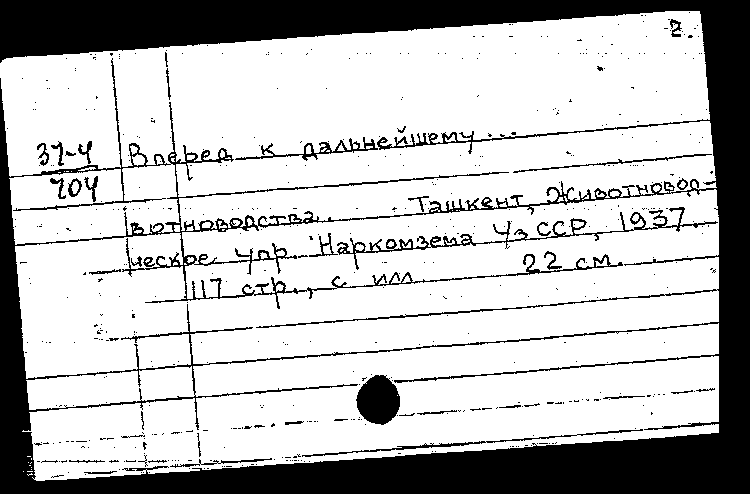 2.
37-4
704
Вперед к дальнейшему...
вотноводства. Ташкент, Животновод-
ческое упр. Наркомзема УзССР, 1937.
117 стр., с илл. 22 см.